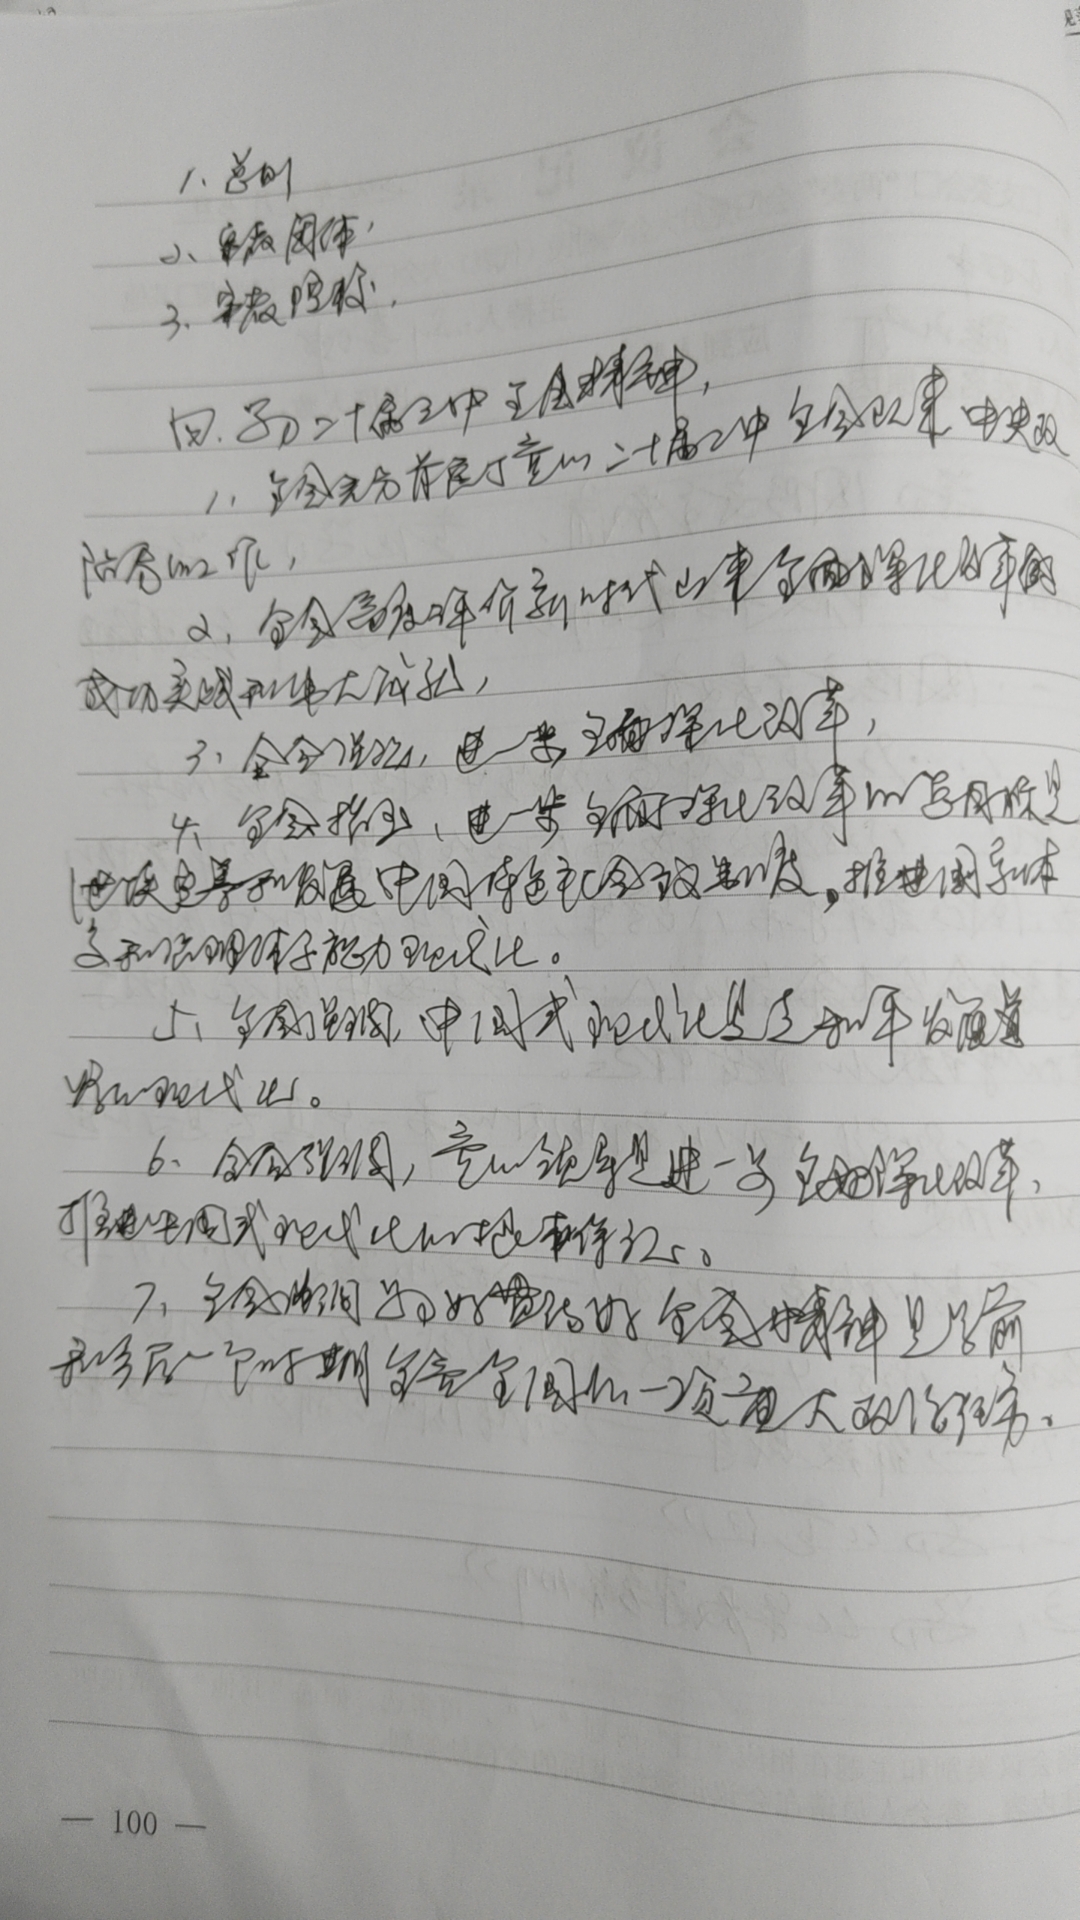 1、总则
2、宗教团体,
3、宗教院校,
四、学习二十届三中全会精神,
1、全会充分肯定了党的二十届二中全会以来中央政
治局的工作,
2、全会高度评价新时代以来全面深化改革的
成功实践和伟大成就,
3、全会强调,进一步全面深化改革,
4、全会指出、进一步全面深化改革的总目标是
继续完善和发展中国特色社会主义制度,推进国家体
系和治理体系能力现代化。
5、全会强调,中国式现代化是走和平发展道
路的现代化。
6、全会强调,党的领导是进一步全面深化改革、
推进中国式现代化的根本保证。
7、全会强调学习好贯彻好全会精神是当前
和今后一个时期全党全国的一项重大政治任务。
— 100 —